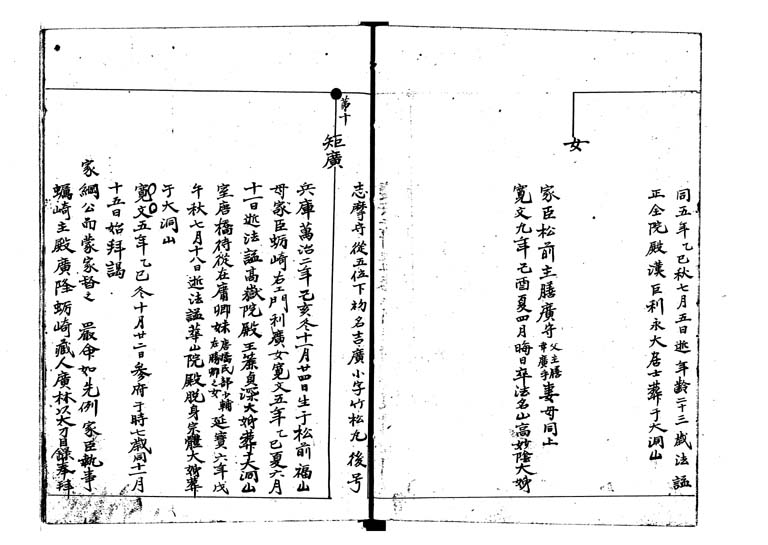 同五年乙巳秋七月五日逝年齡二十三歲法謚
正全院殿漢巨利永大居士葬于大洞山
女
家臣松前主膳廣守父主膳幸廣守妻母同上
寬文九年己酉夏四月晦日卒法名山高妙陰大姉
第十
矩廣
志摩守從五位下初名吉廣小字竹松丸後号
兵庫萬治二年己亥冬十一月廿四日生于松前福山
母家臣蛎崎右エ門利廣女寬文五年乙巳夏六月
十一日逝法謚高嶽院殿玉蘂貞深大姉葬于大洞山
室唐橋侍從在庸卿妹唐橋民部少輔在勝卿之女延寶六年戊
午秋七月十八日逝法謚華山院殿脫身宗體大姉葬
于大洞山
寬文五年乙巳冬十月廿二日參府于時七歲同十一月
十五日始拜謁
家綱公而蒙家督之 嚴命如先例家臣執事
蠣崎主殿廣隆蛎崎藏人廣林以太刀目錄奉拜